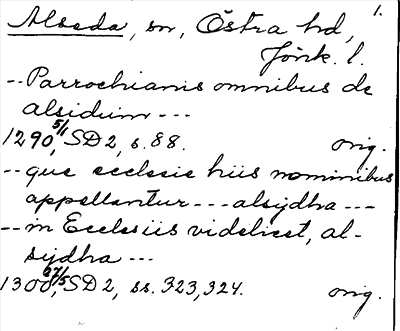 1.
Alseda, sn, Östra hd,
Jönk. l.
-- Parrochianis omnibus de
alsidum ---
1290 5/1, SD 2, s. 88. orig.
-- que ecclesie hiis nominibus
appellantur --- alsijdha ---
-- in Ecclesiis videlicet, al-
sijdha ---
1300 27/5, SD 2, ss. 323, 324. orig.